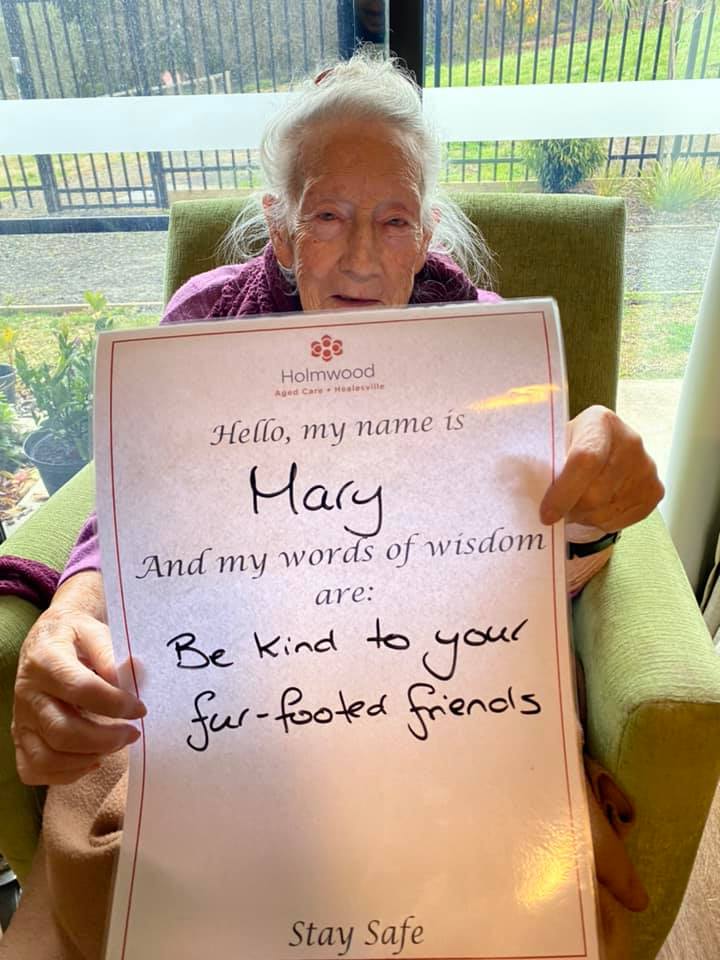 Holmwood
Aged Care • Healesville
Hello, my name is
Mary
And my words of wisdom
are:
Be kind to your
fur-footed friends
Stay Safe